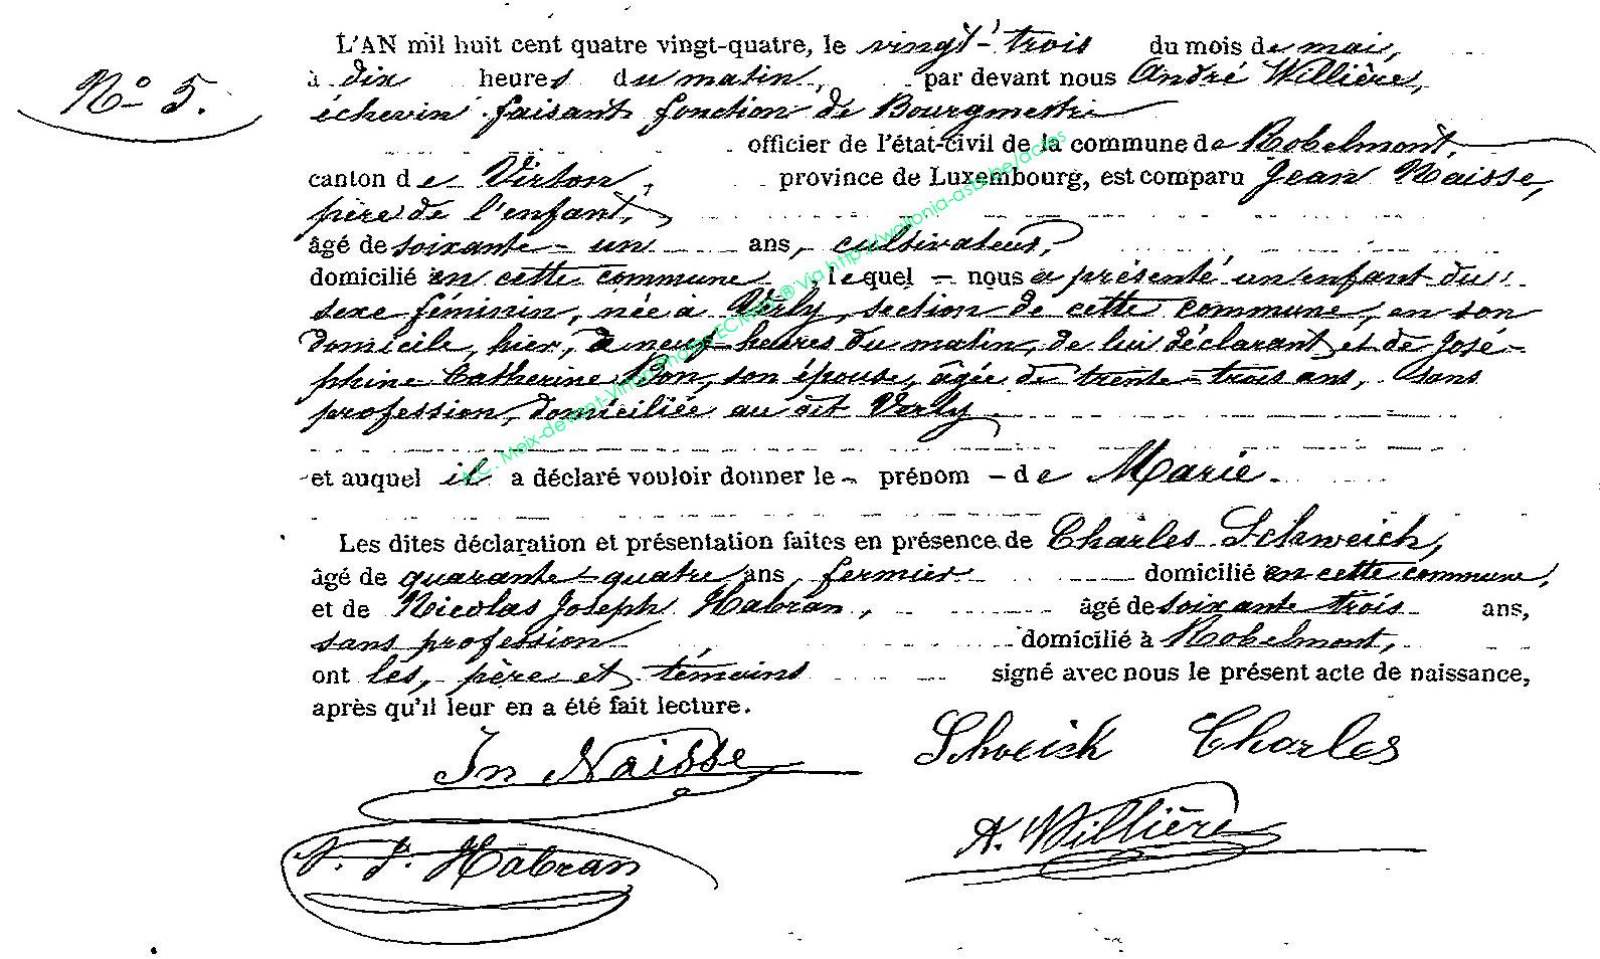 L'AN mil huit cent quatre vingt-quatre, le vingt-trois du mois de mai,
N° 5.
à dix heures du matin, par devant nous André Willière,
échevin faisant fonction de Bourgmestre
officier de l'état-civil de la commune de Robelmont,
canton de Virton, province de Luxembourg, est comparu Jean Naisse,
père de l'enfant,
âgé de soixante-un ans, cultivateur,
domicilié en cette commune, lequel - nous a présenté un enfant du
sexe féminin, née à Verly, section de cette commune, en son
domicile, hier, à neuf heures du matin, de lui déclarant et de José-
phine Catherine son épouse, âgée de trente-trois ans, sans
profession, domiciliée au dit Verly
et auquel il a déclaré vouloir donner le - prénom - de Marie.
Les dites déclaration et présentation faites en présence de Charles Schweich,
âgé de quarante-quatre ans, fermier domicilié en cette commune,
et de Nicolas Joseph Habran, âgé de soixante trois ans,
sans profession domicilié à Robelmont,
ont les, père et témoins signé avec nous le présent acte de naissance,
après qu'il leur en a été fait lecture.
Jn Naisse Schveich Charles
N. J. Habran A. Willière
A.C. Meix-devant-Virton via http://wallonia-asbl.be/actes